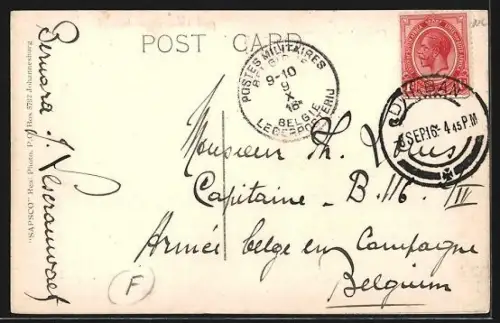 POST CARD
POSTES MILITAIRES
BELGIQUE
9-10
9
X
16
BELGIE
LEGERPOSTERIJ
DURBAN
SEP 16 4 45 PM
Monsieur Th.
Capitaine - B. 116. /III
Armée belge en Campagne
Belgium
Bernard J.
"SAPSCO" Real Photo, P.O. Box 5792 Johannesburg
F